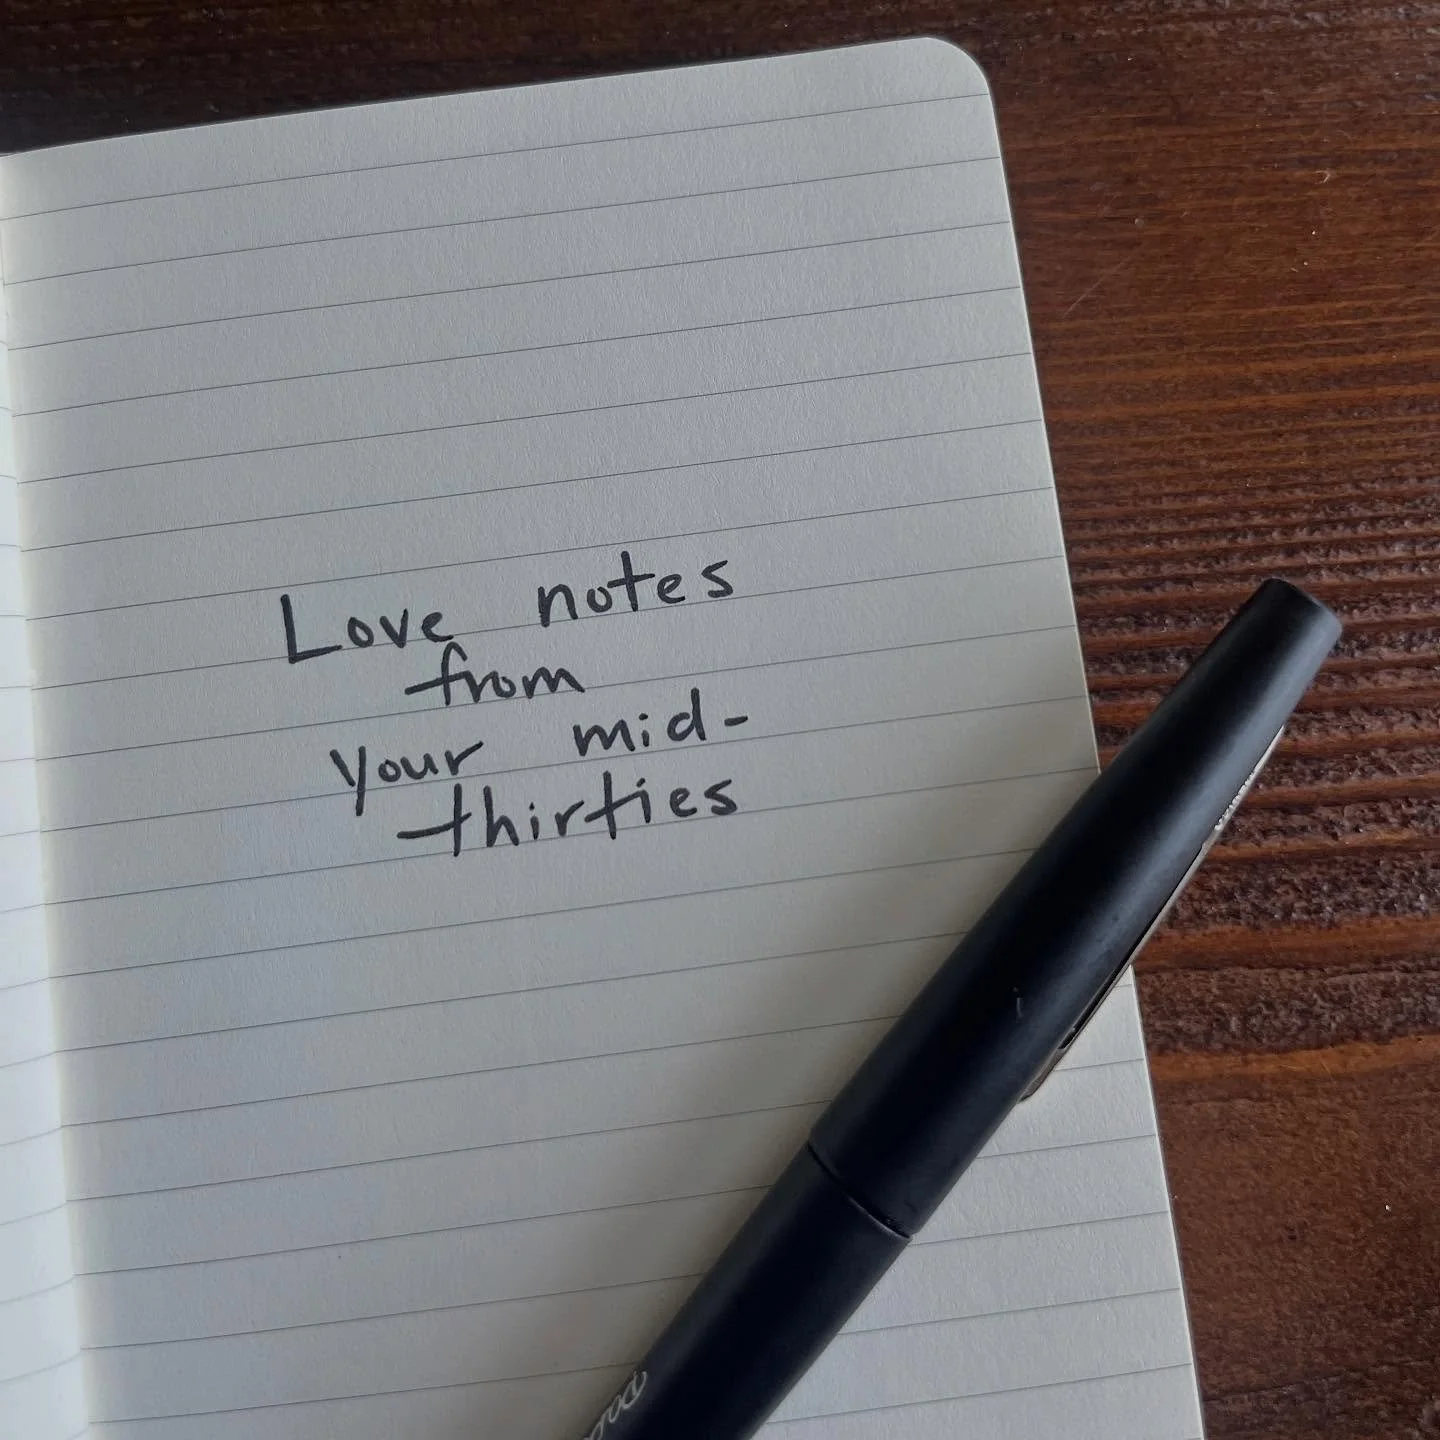 Love notes
from
your mid-
thirties